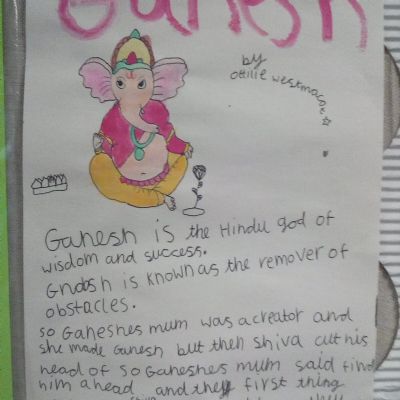 Ganesh
by
ottilie westmacott
Ganesh is the Hindu god of
wisdom and success.
Gnash is known as the remover of
obstacles.
so Ganeshes mum was a creator and
she made Ganesh but then shiva cut his
head of so Ganeshes mum said find
him a head and they first thing